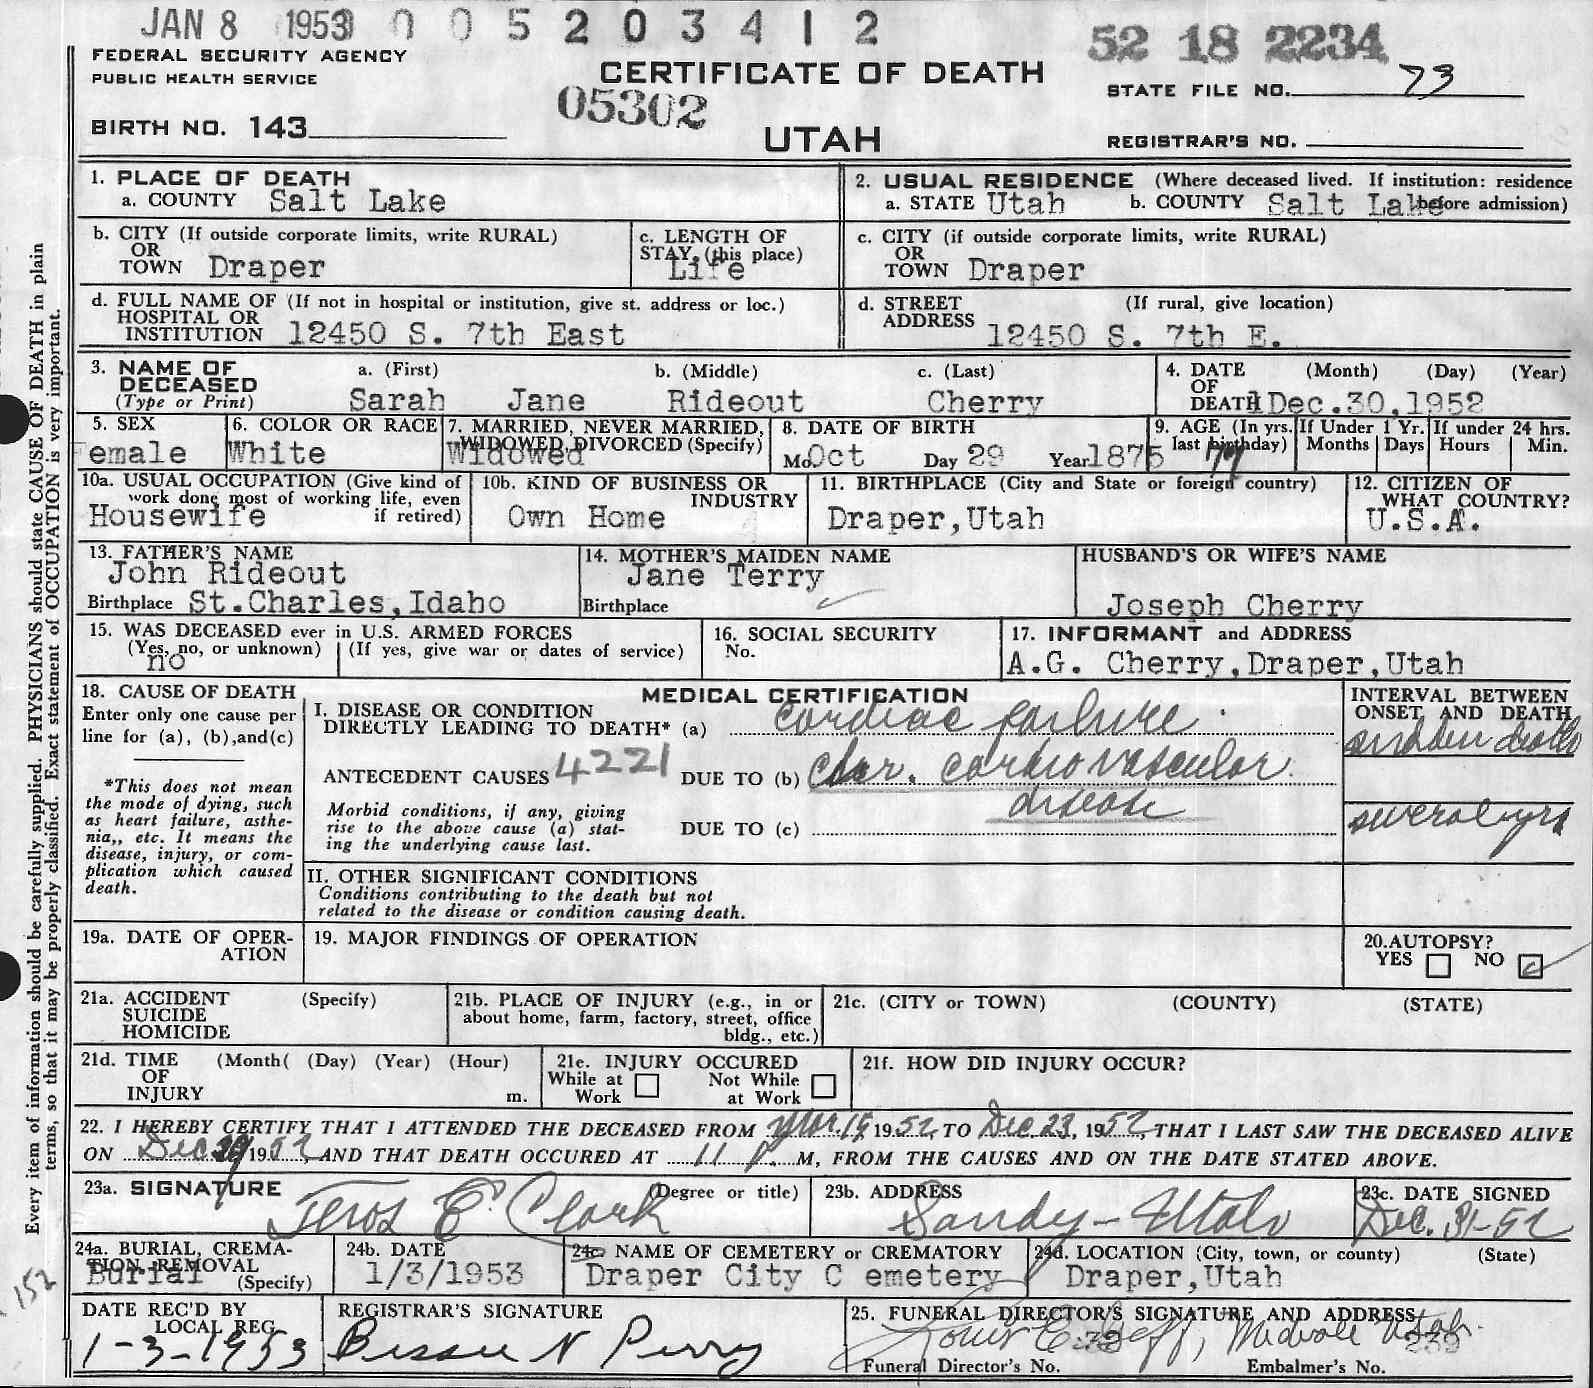 JAN 8 1953 0 0 5 2 0 3 4 1 2
52 18 2234
FEDERAL SECURITY AGENCY
PUBLIC HEALTH SERVICE
CERTIFICATE OF DEATH
STATE FILE NO. 73
05302
BIRTH NO. 143
UTAH
REGISTRAR'S NO.
1. PLACE OF DEATH
a. COUNTY Salt Lake
2. USUAL RESIDENCE (Where deceased lived. If institution: residence before admission)
a. STATE Utah b. COUNTY Salt Lake
b. CITY (If outside corporate limits, write RURAL)
OR
TOWN Draper
c. LENGTH OF
STAY (this place)
Life
c. CITY (if outside corporate limits, write RURAL)
OR
TOWN Draper
d. FULL NAME OF (If not in hospital or institution, give st. address or loc.)
HOSPITAL OR
INSTITUTION 12450 S. 7th East
d. STREET (If rural, give location)
ADDRESS 12450 S. 7th E.
3. NAME OF DECEASED
(Type or Print)
a. (First) b. (Middle) c. (Last)
Sarah Jane Rideout Cherry
4. DATE OF DEATH (Month) (Day) (Year)
Dec.30,1952
5. SEX
emale
6. COLOR OR RACE
White
7. MARRIED, NEVER MARRIED,
WIDOWED, DIVORCED (Specify)
Widowed
8. DATE OF BIRTH
Mo. Oct Day 29 Year 1875
9. AGE (In yrs. last birthday)
77
If Under 1 Yr. If under 24 hrs.
Months Days Hours Min.
10a. USUAL OCCUPATION (Give kind of
work done most of working life, even
if retired)
Housewife
10b. KIND OF BUSINESS OR
INDUSTRY
Own Home
11. BIRTHPLACE (City and State or foreign country)
Draper,Utah
12. CITIZEN OF
WHAT COUNTRY?
U.S.A.
13. FATHER'S NAME
John Rideout
Birthplace St.Charles,Idaho
14. MOTHER'S MAIDEN NAME
Jane Terry
Birthplace
HUSBAND'S OR WIFE'S NAME
Joseph Cherry
15. WAS DECEASED ever in U.S. ARMED FORCES
(Yes, no, or unknown) (If yes, give war or dates of service)
no
16. SOCIAL SECURITY
No.
17. INFORMANT and ADDRESS
A.G. Cherry,Draper,Utah
18. CAUSE OF DEATH
Enter only one cause per
line for (a), (b),and(c)
*This does not mean
the mode of dying, such
as heart failure, asthe-
nia,, etc. It means the
disease, injury, or com-
plication which caused
death.
MEDICAL CERTIFICATION
I. DISEASE OR CONDITION
DIRECTLY LEADING TO DEATH* (a) cardiac failure
ANTECEDENT CAUSES 4221 DUE TO (b) chr. cardiovascular
disease
Morbid conditions, if any, giving
rise to the above cause (a) stat-
ing the underlying cause last.
DUE TO (c)
INTERVAL BETWEEN
ONSET AND DEATH
sudden death
several yrs
II. OTHER SIGNIFICANT CONDITIONS
Conditions contributing to the death but not
related to the disease or condition causing death.
19a. DATE OF OPER-
ATION
19. MAJOR FINDINGS OF OPERATION
20.AUTOPSY?
YES NO
21a. ACCIDENT (Specify)
SUICIDE
HOMICIDE
21b. PLACE OF INJURY (e.g., in or
about home, farm, factory, street, office
bldg., etc.)
21c. (CITY or TOWN) (COUNTY) (STATE)
21d. TIME (Month( (Day) (Year) (Hour)
OF
INJURY m.
21e. INJURY OCCURED
While at Work Not While at Work
21f. HOW DID INJURY OCCUR?
22. I HEREBY CERTIFY THAT I ATTENDED THE DECEASED FROM Mar. 19, 1952, TO Dec 23, 1952, THAT I LAST SAW THE DECEASED ALIVE
ON Dec 1952, AND THAT DEATH OCCURED AT 11 P M, FROM THE CAUSES AND ON THE DATE STATED ABOVE.
23a. SIGNATURE (Degree or title)
E. Clark
23b. ADDRESS
Sandy - Utah
23c. DATE SIGNED
Dec. 31-52
24a. BURIAL, CREMA-
TION REMOVAL
(Specify)
Burial
24b. DATE
1/3/1953
24c. NAME OF CEMETERY or CREMATORY
Draper City C emetery
24d. LOCATION (City, town, or county) (State)
Draper,Utah
DATE REC'D BY
LOCAL REG.
1-3-1953
REGISTRAR'S SIGNATURE
Bessie N Perry
25. FUNERAL DIRECTOR'S SIGNATURE AND ADDRESS
Midvale Utah.
Funeral Director's No. 38 Embalmer's No. 239
Every item of information should be carefully supplied. PHYSICIANS should state CAUSE OF DEATH in plain
terms, so that it may be properly classified. Exact statement of OCCUPATION is very important.
152